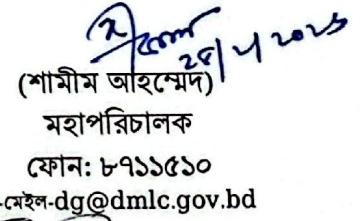 (শামীম আহম্মেদ)
মহাপরিচালক
ফোন: ৮৭১১৫১০
-মেইল-dg@dmlc.gov.bd